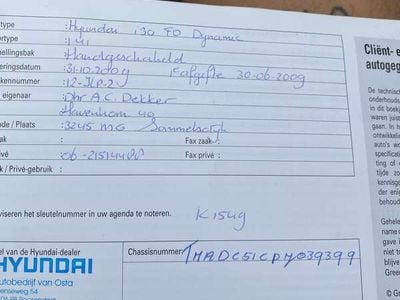 type :Hyundai i30 FD Dynamic
ortype :1.4i
nellingsbak :Handgeschakeld
eringsdatum :31-10-2009 Eafgifte 30-06-2009
kennummer :12-JLP-2
eigenaar :Dhr A.C. Dekker
Havenhorn 49
ode / Plaats :3245 MG Sommelsdijk
ak : Fax zaak :
vé :06-21514488 Fax privé :
k / Privé-gebruik :
viseren het sleutelnummer in uw agenda te noteren. K1549
el van de Hyundai-dealer
HYUNDAI
utobedrijf van Osta
enseweg 54
Chassisnummer: TMADC51CP7J039399
Cliënt- e
autogeg
De technisc
onderhouds
in dit boekj
waren juist
gaan. In ho
ontwikkelin
auto's wo
specificatie
ting of e
tijde zo
kennisge
den enig
behoude
Gehele
name c
gave i
niet to
blijve
Green
© G